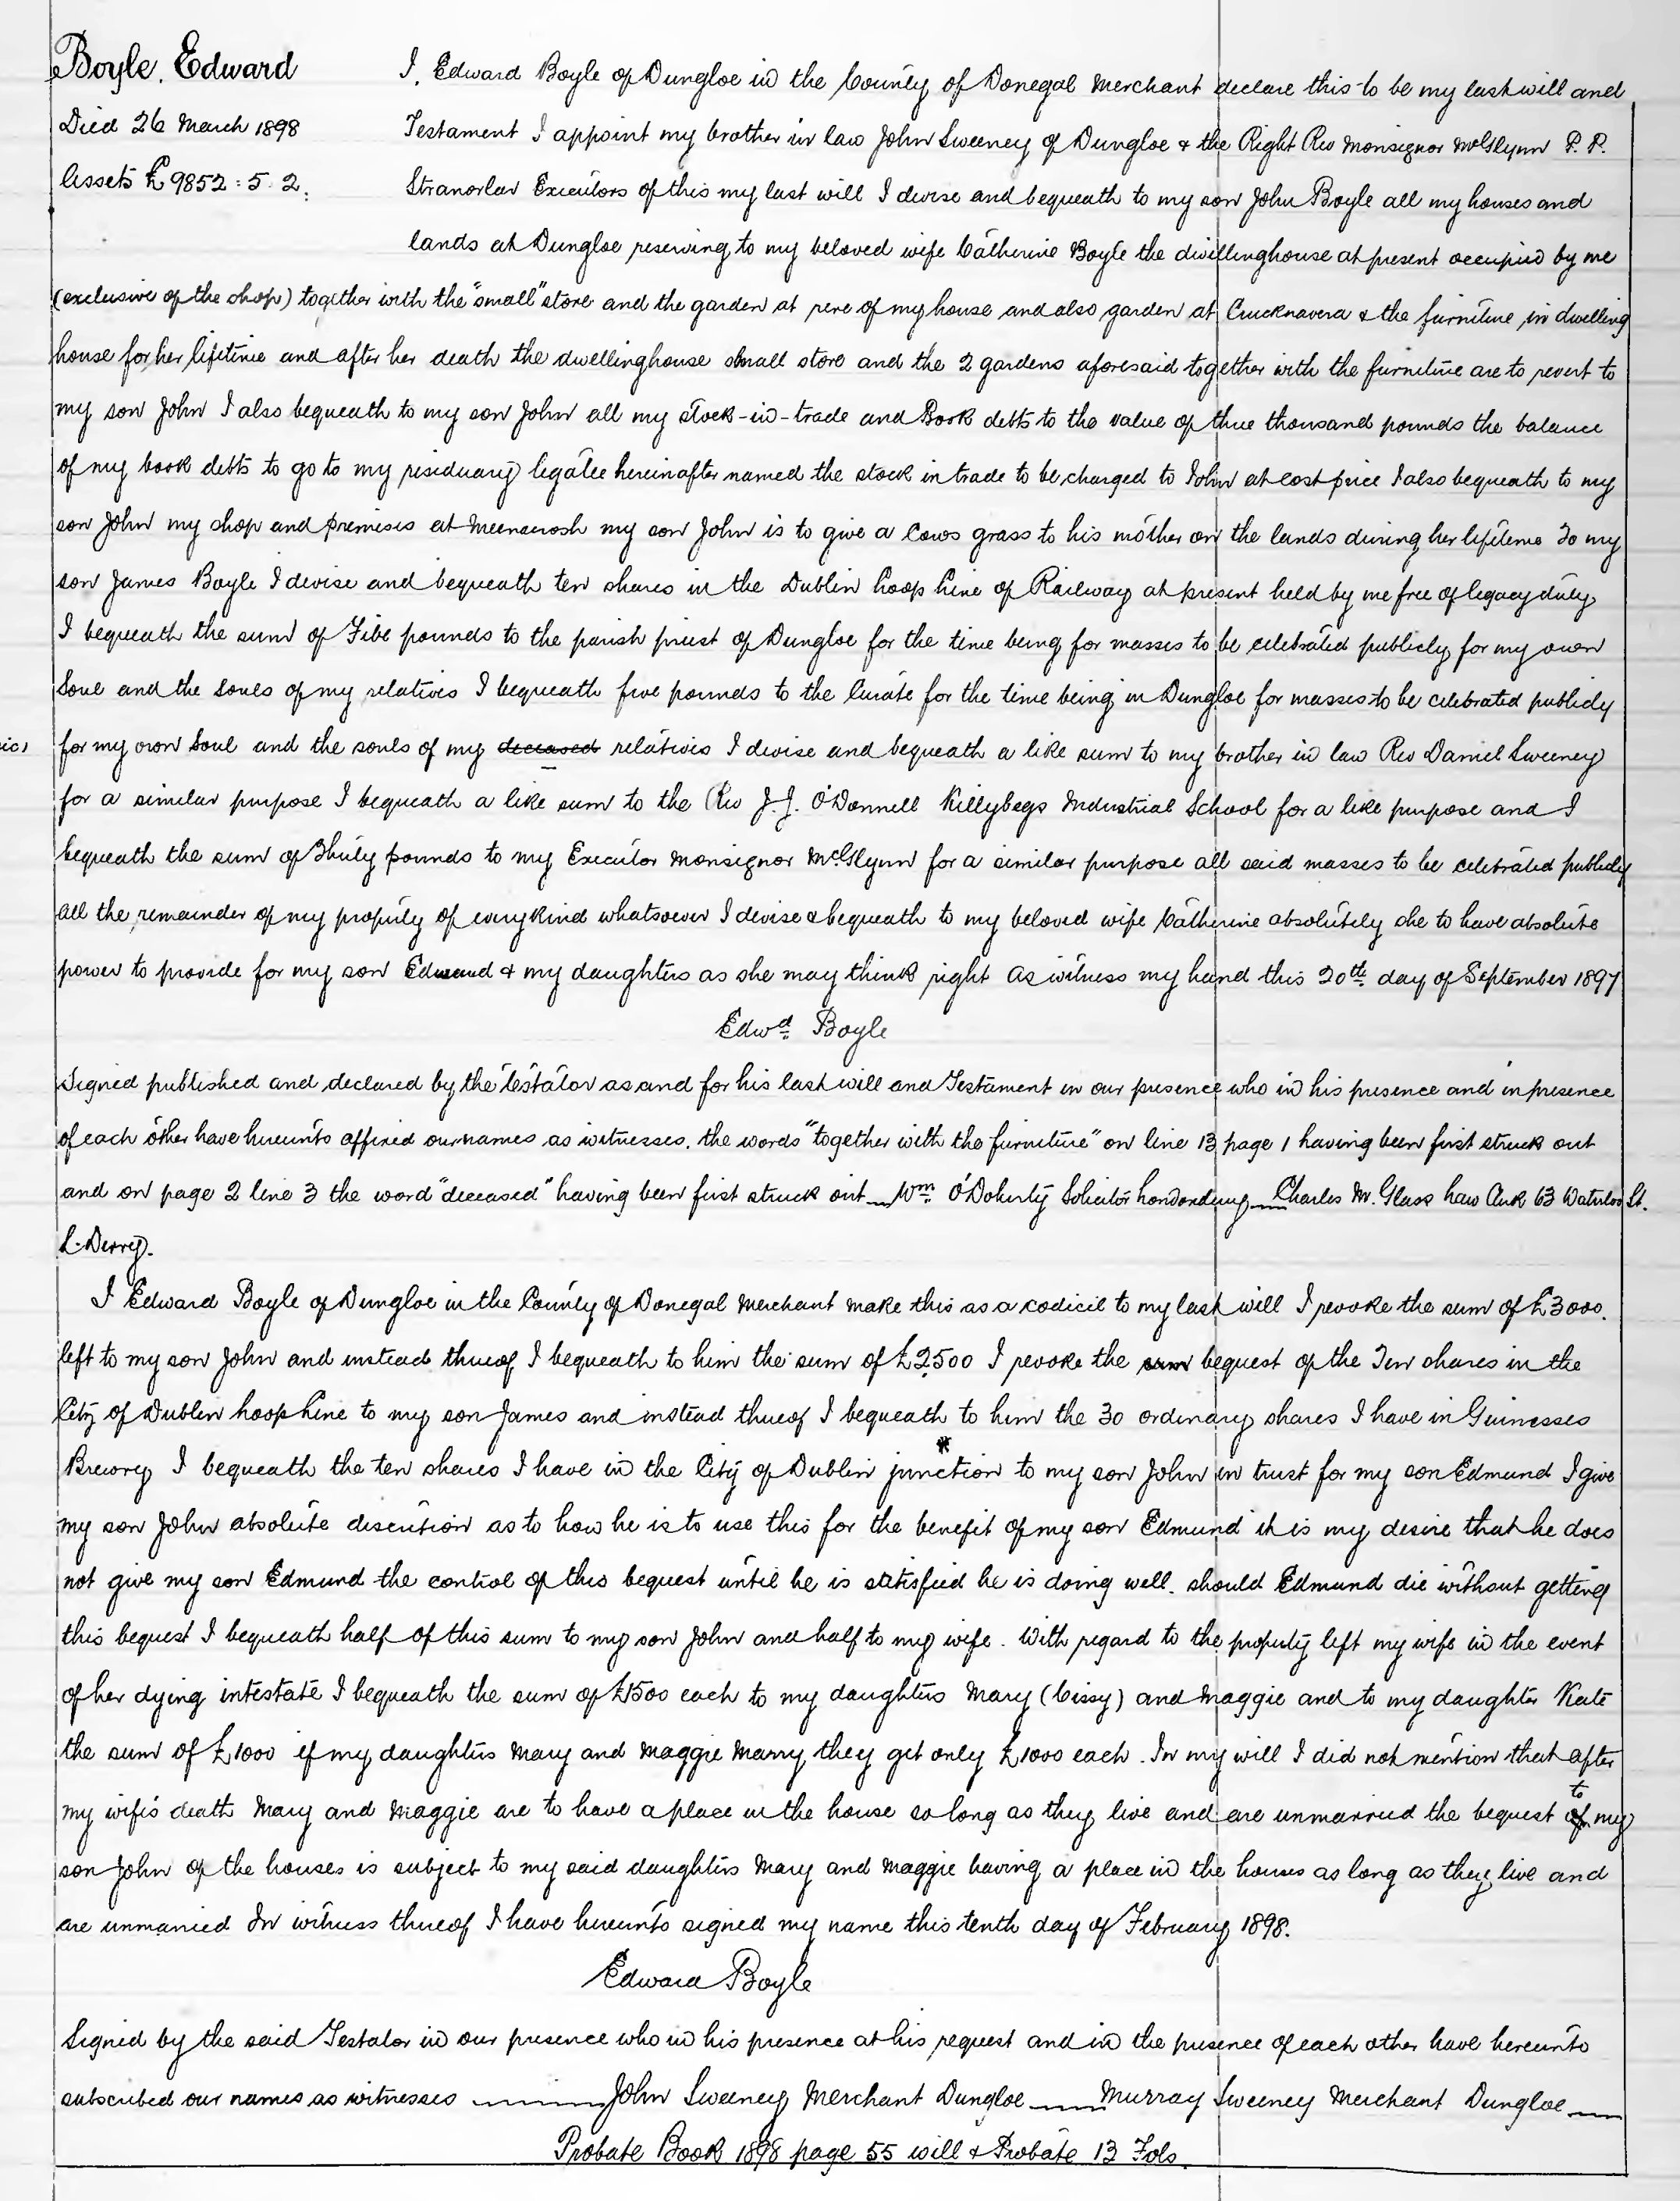 Boyle, Edward
Died 26 March 1898
Assets £9852:5.2.
I, Edward Boyle of Dungloe in the County of Donegal Merchant declare this to be my last will and
Testament I appoint my brother in law John Sweeney of Dungloe & the Right Rev Monsignor McGlynn P.P.
Stranorlar Executors of this my last will I devise and bequeath to my son John Boyle all my houses and
lands at Dungloe reserving to my beloved wife Catherine Boyle the dwellinghouse at present occupied by me
(exclusive of the shop) together with the "small" store and the garden at rere of my house and also garden at Cruicknavera & the furniture in dwelling
house for her lifetime and after her death the dwellinghouse small store and the 2 gardens aforesaid together with the furniture are to revert to
my son John I also bequeath to my son John all my stock-in-trade and Book debts to the value of three thousand pounds the balance
of my book debts to go to my residuary legatee hereinafter named the stock in trade to be charged to John at cost price I also bequeath to my
son John my shop and premises at Meenacrosh my son John is to give a Cows grass to his mother on the lands during her lifetime To my
son James Boyle I devise and bequeath ten shares in the Dublin Loop Line of Railway at present held by me free of legacy duty
I bequeath the sum of Five pounds to the parish priest of Dungloe for the time being for masses to be celebrated publicly for my own
Soul and the Souls of my relatives I bequeath five pounds to the Curate for the time being in Dungloe for masses to be celebrated publicly
for my own Soul and the souls of my deceased relatives I devise and bequeath a like sum to my brother in law Rev Daniel Sweeney
for a similar purpose I bequeath a like sum to the Rev J.J. O'Donnell Killybegs Industrial School for a like purpose and I
bequeath the sum of Thirty pounds to my Executor Monsignor McGlynn for a similar purpose all said masses to be celebrated publicly
all the remainder of my property of every kind whatsoever I devise & bequeath to my beloved wife Catherine absolutely she to have absolute
power to provide for my son Edmund & my daughters as she may think right as witness my hand this 20th day of September 1897
Edwd Boyle
Signed published and declared by the testator as and for his last will and Testament in our presence who in his presence and in presence
of each other have hereunto affixed our names as witnesses. the words "together with the furniture" on line 13 page 1 having been first struck out
and on page 2 line 3 the word "deceased" having been first struck out — Wm O'Doherty Solicitor Londonderry — Charles M. Glass Law Clerk 63 Waterloo St.
L.Derry.
I Edward Boyle of Dungloe in the County of Donegal Merchant make this as a codicil to my last will I revoke the sum of £3000.
left to my son John and instead thereof I bequeath to him the sum of £2500 I revoke the sum bequest of the Ten shares in the
City of Dublin Loop Line to my son James and instead thereof I bequeath to him the 30 ordinary shares I have in Guinesses
Brewery I bequeath the ten shares I have in the City of Dublin junction to my son John in trust for my son Edmund I give
my son John absolute discretion as to how he is to use this for the benefit of my son Edmund it is my desire that he does
not give my son Edmund the control of this bequest until he is satisfied he is doing well. should Edmund die without getting
this bequest I bequeath half of this sum to my son John and half to my wife. With regard to the property left my wife in the event
of her dying intestate I bequeath the sum of £1500 each to my daughters Mary (Cissy) and Maggie and to my daughter Kate
the sum of £1000 if my daughters Mary and Maggie Marry they get only £1000 each. In my will I did not mention that after
my wife's death Mary and Maggie are to have a place in the house so long as they live and are unmarried the bequest of to my
son John of the houses is subject to my said daughters Mary and Maggie having a place in the houses as long as they live and
are unmarried In witness thereof I have hereunto signed my name this tenth day of February 1898.
Edward Boyle
Signed by the said Testator in our presence who in his presence at his request and in the presence of each other have hereunto
subscribed our names as witnesses — John Sweeney Merchant Dungloe — Murray Sweeney Merchant Dungloe —
Probate Book 1898 page 55 will & Probate 13 Fols.